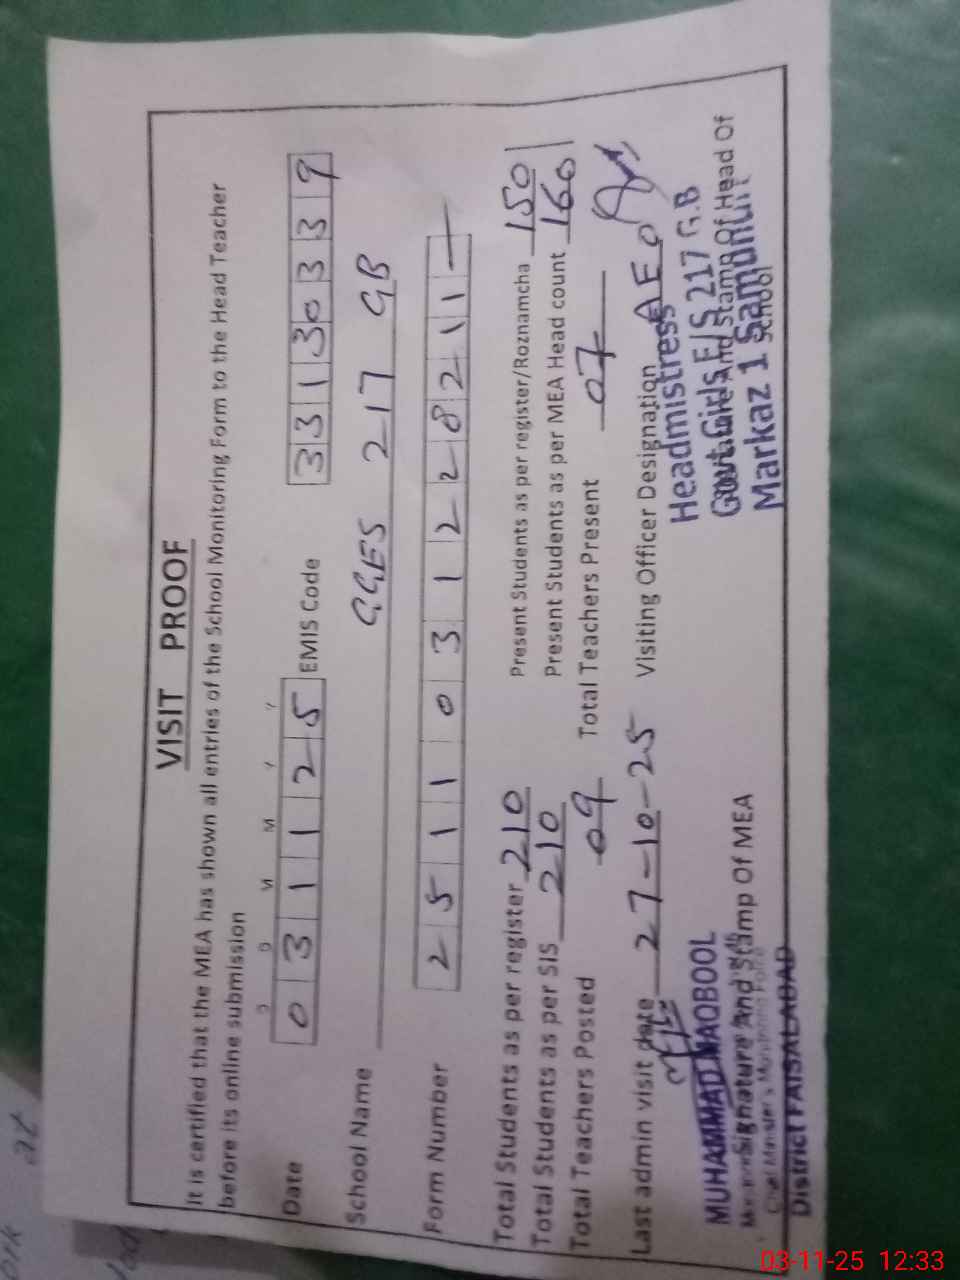 VISIT PROOF
It is certified that the MEA has shown all entries of the School Monitoring Form to the Head Teacher
before its online submission
D D M M Y Y
Date 0 3 1 1 2 5 EMIS Code 3 3 1 3 0 3 3 9
School Name GGES 217 GB
Form Number 2 5 1 1 0 3 1 2 2 8 2 1 1 -
Total Students as per register 210 Present Students as per register/Roznamcha 150
Total Students as per SIS 210 Present Students as per MEA Head count 160
Total Teachers Posted 09 Total Teachers Present 07
Last admin visit date 27-10-25 Visiting Officer Designation AEO
MUHAMMAD MAQBOOL
Signature And Stamp Of MEA
Chief Minister's Monitoring Force
District FAISALABAD
Headmistress
Govt Girls E/S 217 G.B
Signature And Stamp Of Head Of
School
Markaz 1 Samundri
03-11-25 12:33
at